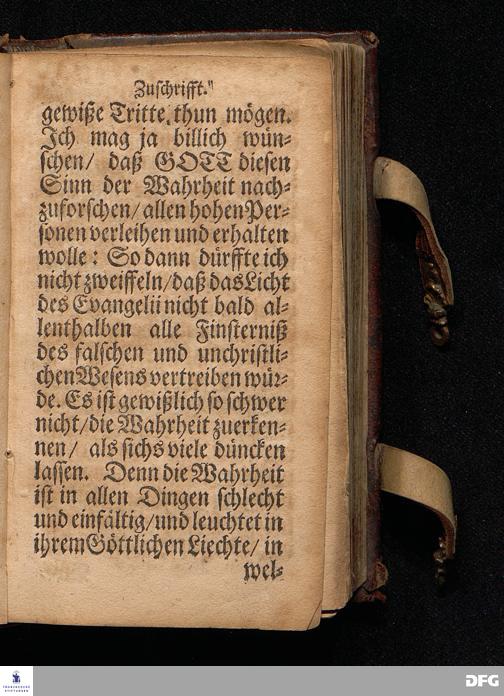 Zuschrifft.
gewiße Tritte thun mögen.
Ich mag ja billich wün-
schen/ daß GOTT diesen
Sinn der Wahrheit nach-
zuforschen/ allen hohen Per-
sonen verleihen und erhalten
wolle: So dann dürffte ich
nicht zweiffeln/ daß das Licht
des Evangelii nicht bald al-
lenthalben alle Finsterniß
des falschen und unchristli-
chen Wesens vertreiben wür-
de. Es ist gewißlich so schwer
nicht/ die Wahrheit zuerken-
nen/ als sichs viele düncken
lassen. Denn die Wahrheit
ist in allen Dingen schlecht
und einfältig/ und leuchtet in
ihrem Göttlichen Liechte/ in
wel-
FRANCKESCHE
STIFTUNGEN
DFG